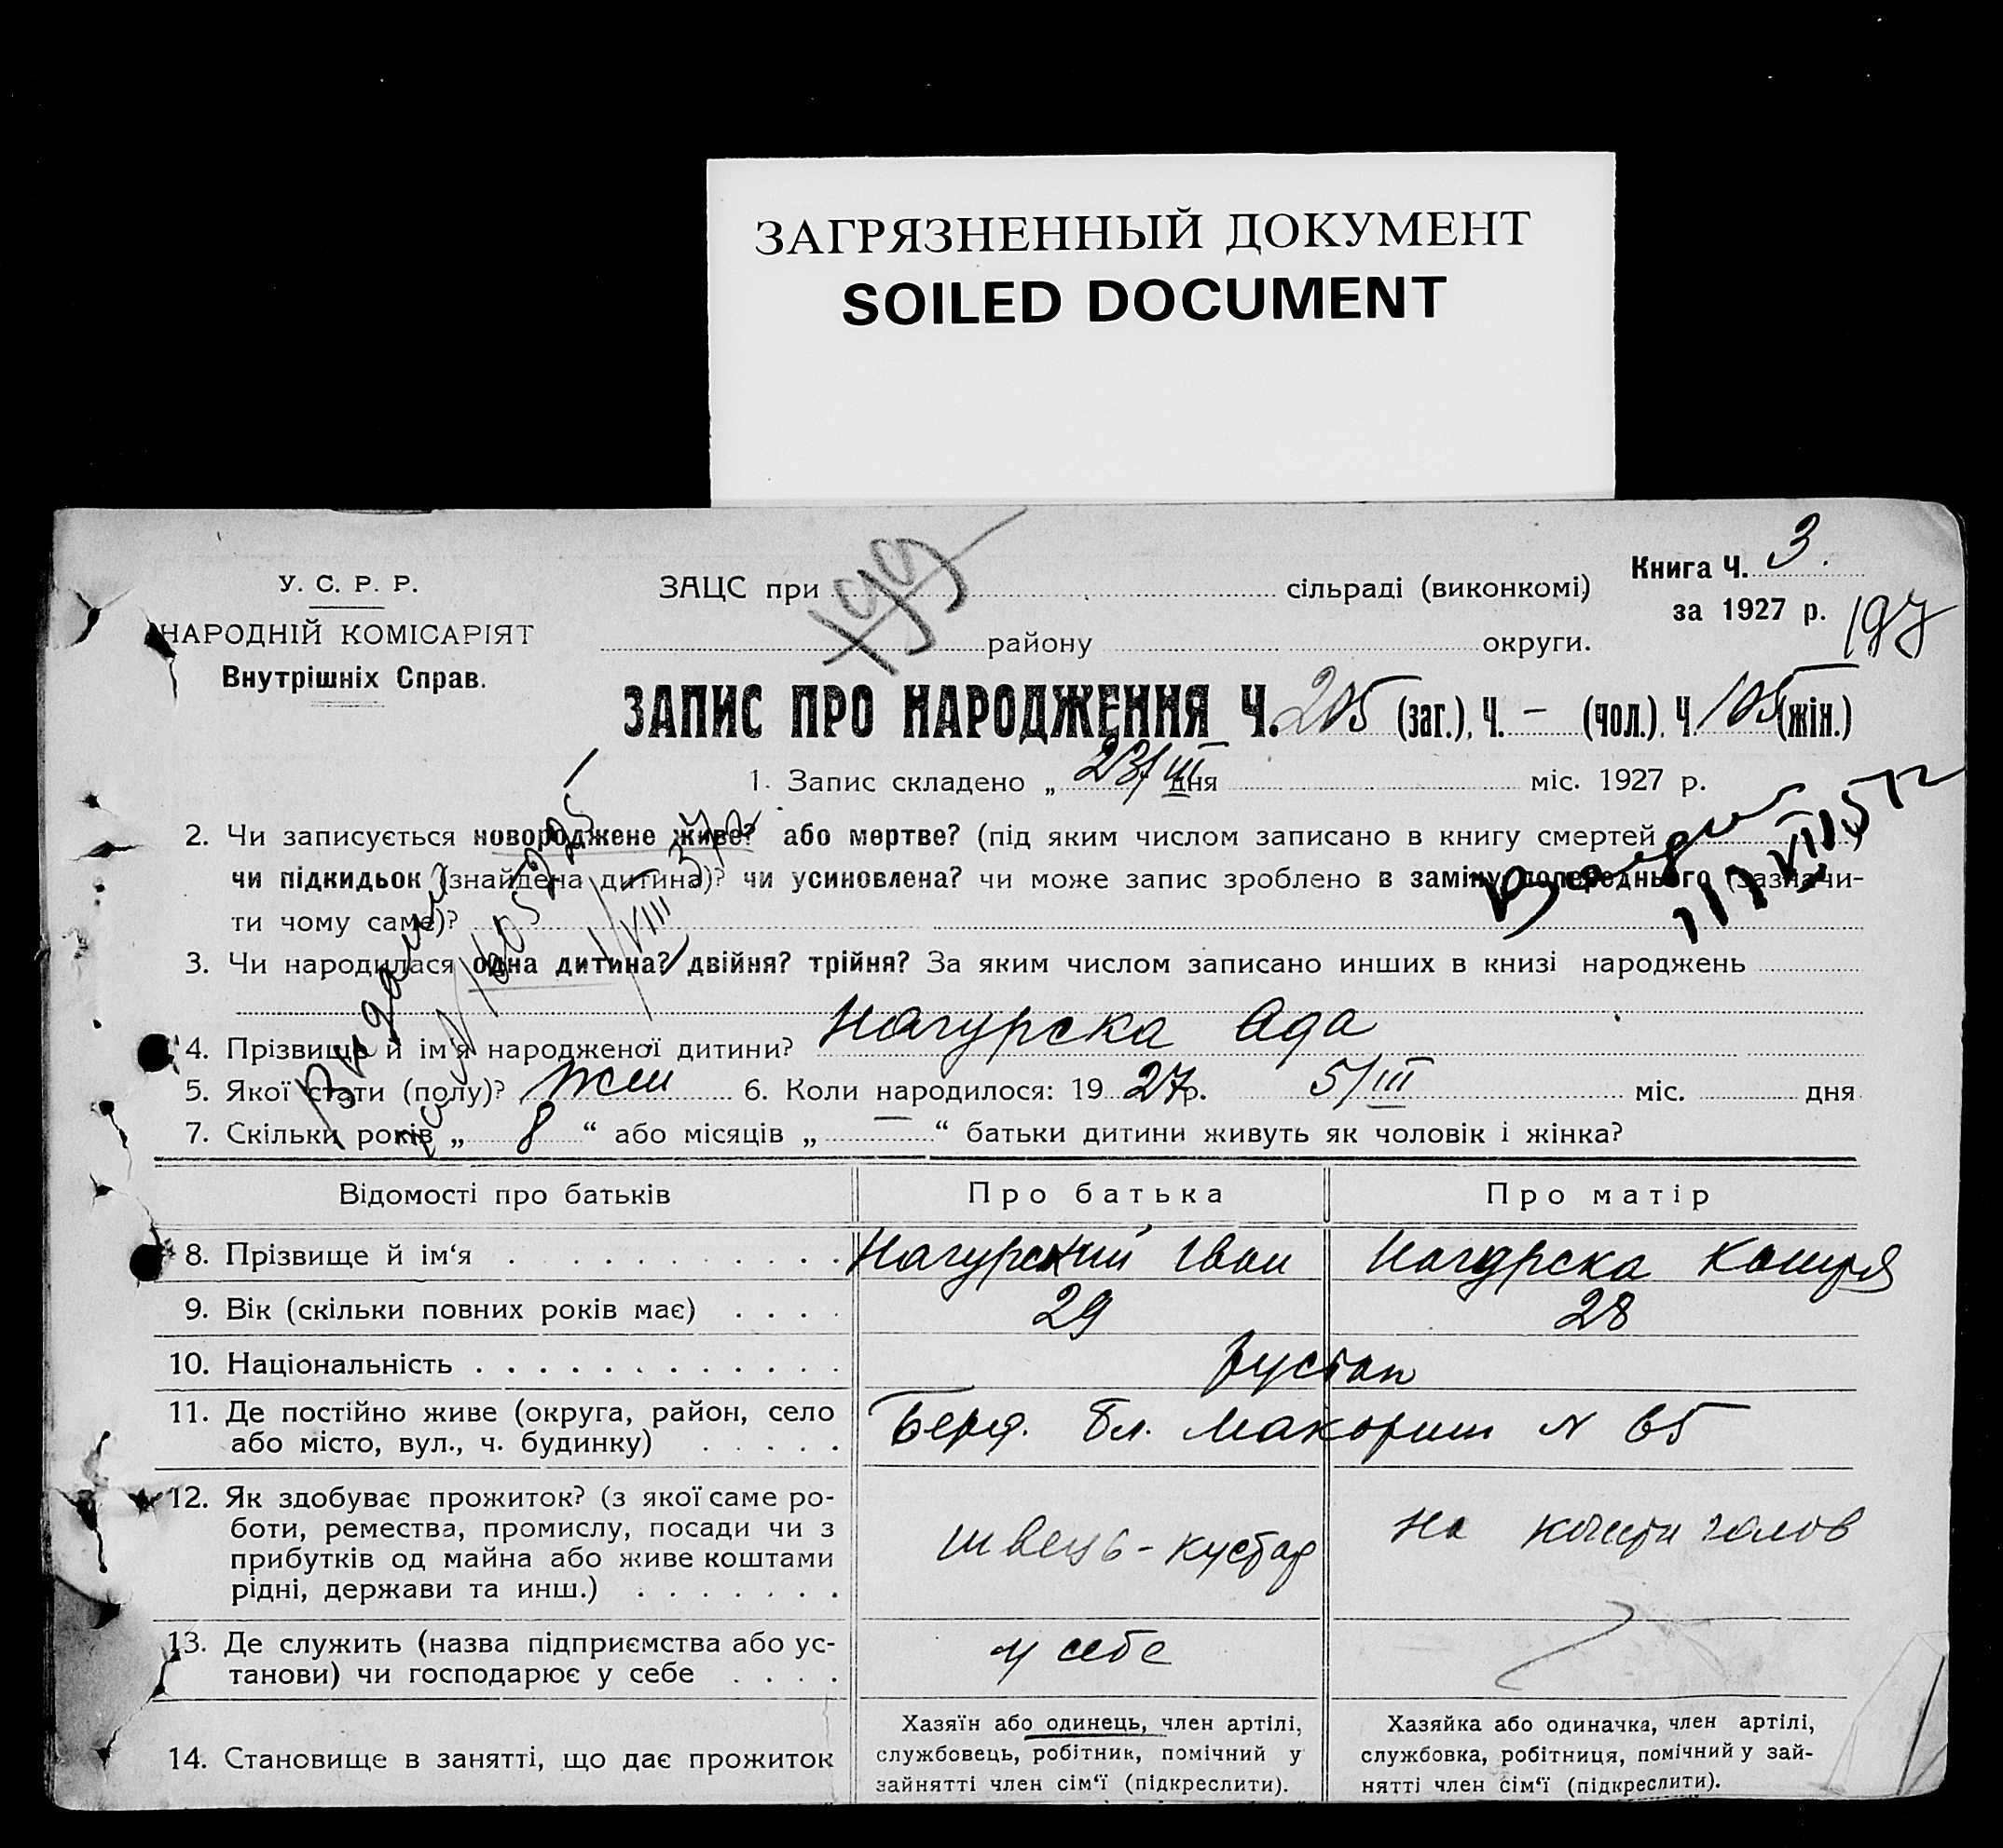 ЗАГРЯЗНЕННЫЙ ДОКУМЕНТ
SOILED DOCUMENT
У. С. Р. Р.
НАРОДНІЙ КОМІСАРІЯТ
Внутрішніх Справ.
ЗАЦС при сільраді (виконкомі)
району округи.
Книга Ч. 3.
за 1927 р.
197
ЗАПИС ПРО НАРОДЖЕННЯ Ч. 205 (заг.), Ч. – (чол.), Ч. 105 (жін.)
1. Запис складено „ 23/III дня міс. 1927 р.
2. Чи записується новороджене живе? або мертве? (під яким числом записано в книгу смертей )
чи підкидьок (знайдена дитина)? чи усиновлена? чи може запис зроблено в заміну попереднього (зазначи-
ти чому саме)?
3. Чи народилася одна дитина? двійня? трійня? За яким числом записано инших в книзі народжень
4. Прізвище й ім'я народженої дитини? Нагурска Ада
5. Якої стати (полу)? жін 6. Коли народилося: 1927 р. 5/III міс. дня
7. Скільки років „ 8 “ або місяців „ — “ батьки дитини живуть як чоловік і жінка?
Відомості про батьків Про батька Про матір
8. Прізвище й ім‘я Нагурский Іван Нагурска Катря
9. Вік (скільки повних років має) 29 28
10. Національність
11. Де постійно живе (округа, район, село
або місто, вул., ч. будинку) Берд. N 65
12. Як здобуває прожиток? (з якої саме ро-
боти, ремества, промислу, посади чи з
прибутків од майна або живе коштами
рідні, держави та инш.) швець-кустар на кошти голов
13. Де служить (назва підприємства або ус-
танови) чи господарює у себе у себе
14. Становище в занятті, що дає прожиток
Хазяїн або одинець, член артілі,
службовець, робітник, помічний у
зайнятті член сім‘ї (підкреслити).
Хазяйка або одиначка, член артілі,
службовка, робітниця, помічний у зай-
нятті член сім‘ї (підкреслити).